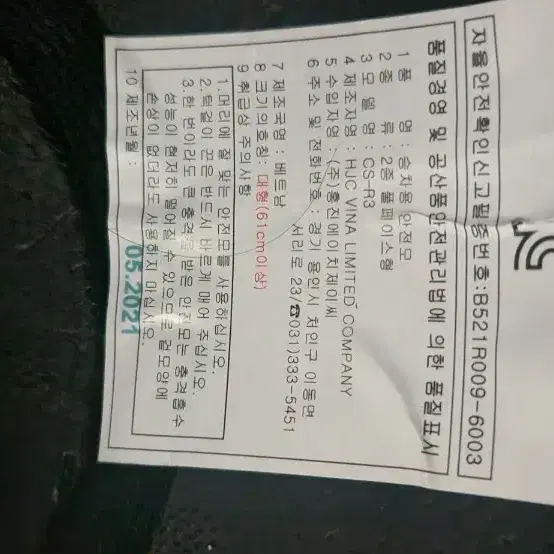 자율안전확인신고필증번호:B521R009-6003
품질경영 및 공산품안전관리법에 의한 품질표시
1 품 명 : 승차용 안전모
2 종 류 : 2종 풀페이스형
3 모 델 명 : CS-R3
4 제조자명 : HJC VINA LIMITED COMPANY
5 수입자명 : (주)홍진에이치제이씨
6 주소 및 전화번호 : 경기 용인시 처인구 이동면
서리로 23/☎031)333-5451
7 제조국명 : 베트남
8 크기의호칭: 대형(61cm이상)
9 취급상 주의사항
1. 머리에 잘 맞는 안전모를 사용하십시오.
2. 턱걸이 끈은 반드시 바르게 매어 주십시오.
3. 한 번이라도 큰 충격을 받은 안전모는 충격흡수
성능이 현저히 떨어질 수 있으므로 겉모양에
손상이 없더라도 사용하지 마십시오.
10 제조년월 : 05.2021